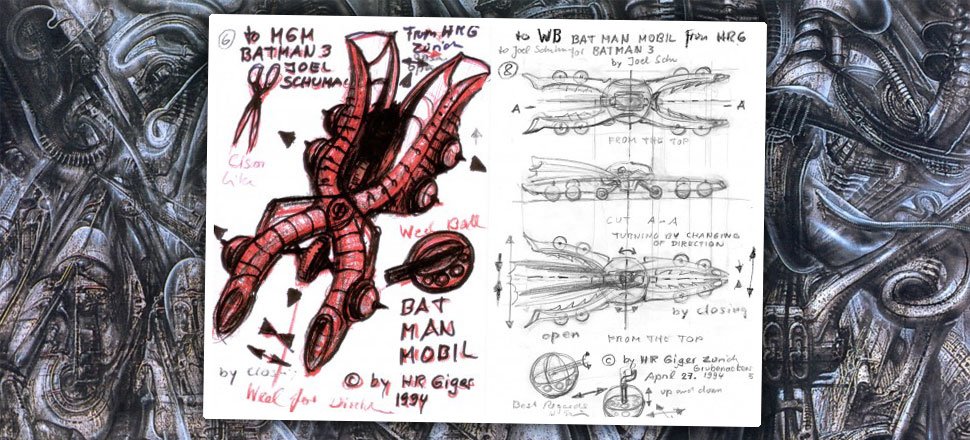 6
to MGM
BATMAN 3
JOEL
SCHUMA
From HRG
Zürich
Like
Weel Ball
BAT
MAN
MOBIL
by Clos
© by HR Giger
1994
Weel for
to WB BATMAN MOBIL from HRG
to Joel Schum for BATMAN 3
by Joel Schu
8
A
A
FROM THE TOP
CUT A-A
TURNING BY CHANGING
OF DIRECTION
by closing
open
FROM THE TOP
© by HR Giger Zürich
April 27. 1994
5
up and down
Best Regards